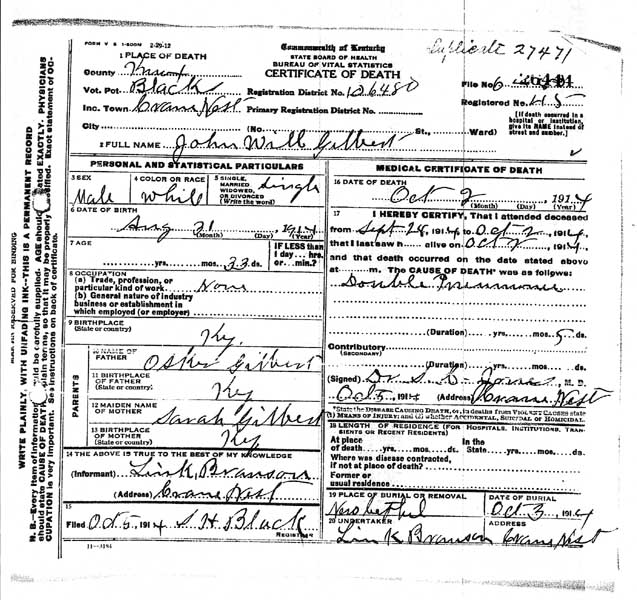 FORM V S 1-500M 2-29-12
Commonwealth of Kentucky
Duplicate 27471
1 PLACE OF DEATH
STATE BOARD OF HEALTH
BUREAU OF VITAL STATISTICS
County Knox
CERTIFICATE OF DEATH
File No.
Vot. Pct. Black
Registration District No. 126480
Registered No. 45
Inc. Town Crane Nest Primary Registration District No.
(If death occurred in a hospital or institution, give its NAME instead of street and number.)
City (No. St., Ward)
2 FULL NAME John Will Gilbert
PERSONAL AND STATISTICAL PARTICULARS
3 SEX Male
4 COLOR OR RACE White
5 SINGLE, MARRIED, WIDOWED, OR DIVORCED (Write the word) Single
6 DATE OF BIRTH
Aug 31 1914
(Month) (Day) (Year)
7 AGE
yrs. mos. 33 ds.
IF LESS than 1 day... hrs. or... min.?
8 OCCUPATION
(a) Trade, profession, or particular kind of work None
(b) General nature of industry business or establishment in which employed (or employer)
9 BIRTHPLACE (State or country) Ky.
PARENTS
10 NAME OF FATHER Osker Gilbert
11 BIRTHPLACE OF FATHER (State or country) Ky
12 MAIDEN NAME OF MOTHER Sarah Gilbert
13 BIRTHPLACE OF MOTHER (State or country) Ky
14 THE ABOVE IS TRUE TO THE BEST OF MY KNOWLEDGE
(Informant) Link Branson
(Address) Crane Nest
15
Filed Oct 5, 1914 S H Black
REGISTRAR
11-3184
MEDICAL CERTIFICATE OF DEATH
16 DATE OF DEATH
Oct 2 1914
(Month) (Day) (Year)
17 I HEREBY CERTIFY, That I attended deceased
from Sept 28, 1914, to Oct 2, 1914,
that I last saw h alive on Oct 2, 1914,
and that death occurred on the date stated above
at m. The CAUSE OF DEATH* was as follows:
Double Pneumonia
(Duration) yrs. mos. 5 ds.
Contributory
(SECONDARY)
(Duration) yrs. mos. ds.
(Signed) Dr. Jones, M. D.
Oct 5, 1914 (Address) Crane Nest
*State the DISEASE CAUSING DEATH, or, in deaths from VIOLENT CAUSES state (1) MEANS OF INJURY; and (2) whether ACCIDENTAL, SUICIDAL or HOMICIDAL.
18 LENGTH OF RESIDENCE (FOR HOSPITALS, INSTITUTIONS, TRANSIENTS OR RECENT RESIDENTS)
At place of death yrs. mos. ds. In the State yrs. mos. ds.
Where was disease contracted, if not at place of death?
Former or usual residence
19 PLACE OF BURIAL OR REMOVAL
DATE OF BURIAL
Oct 3, 1914
20 UNDERTAKER
ADDRESS
Link Branson Crane Nest
WRITE PLAINLY, WITH UNFADING INK—THIS IS A PERMANENT RECORD